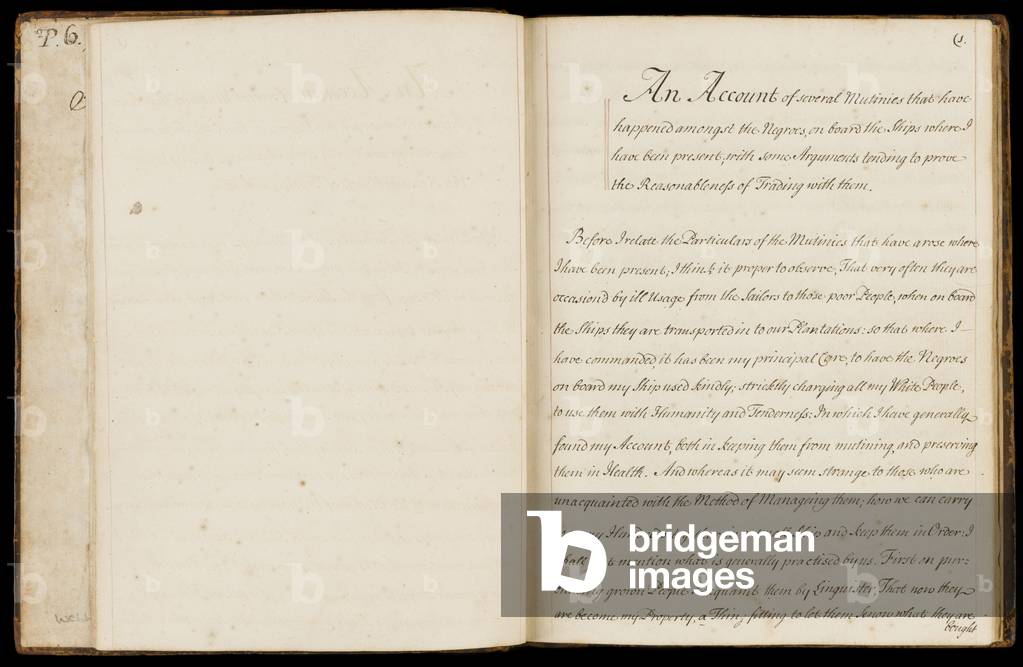 P. 6.
(1.
An Account of several Mutinies that have
happened amongst the Negroes, on board the Ships where I
have been present; with some Arguments tending to prove
the Reasonableness of Trading with them.
Before I relate the Particulars of the Mutinies that have arose where
I have been present; I think it proper to observe, That very often they are
occasion'd by ill Usage from the Sailors to those poor People, when on board
the Ships they are transported in to our Plantations: so that where I
have commanded, it has been my principal Care, to have the Negroes
on board my Ship used kindly; stricktly charging all my White People,
to use them with Humanity and Tenderness: In which I have generally
found my Account, both in keeping them from mutining, and preserving
them in Health. And whereas it may seem strange to those who are
unacquainted with the Method of Manageing them; how we can carry
and keep them in Order: I
mention what is generally practised by us. First on pur-
grown People acquaint them by Linguister, That now they
are become my Property, a Thing fitting to let them know what they are
bought
bridgeman
images